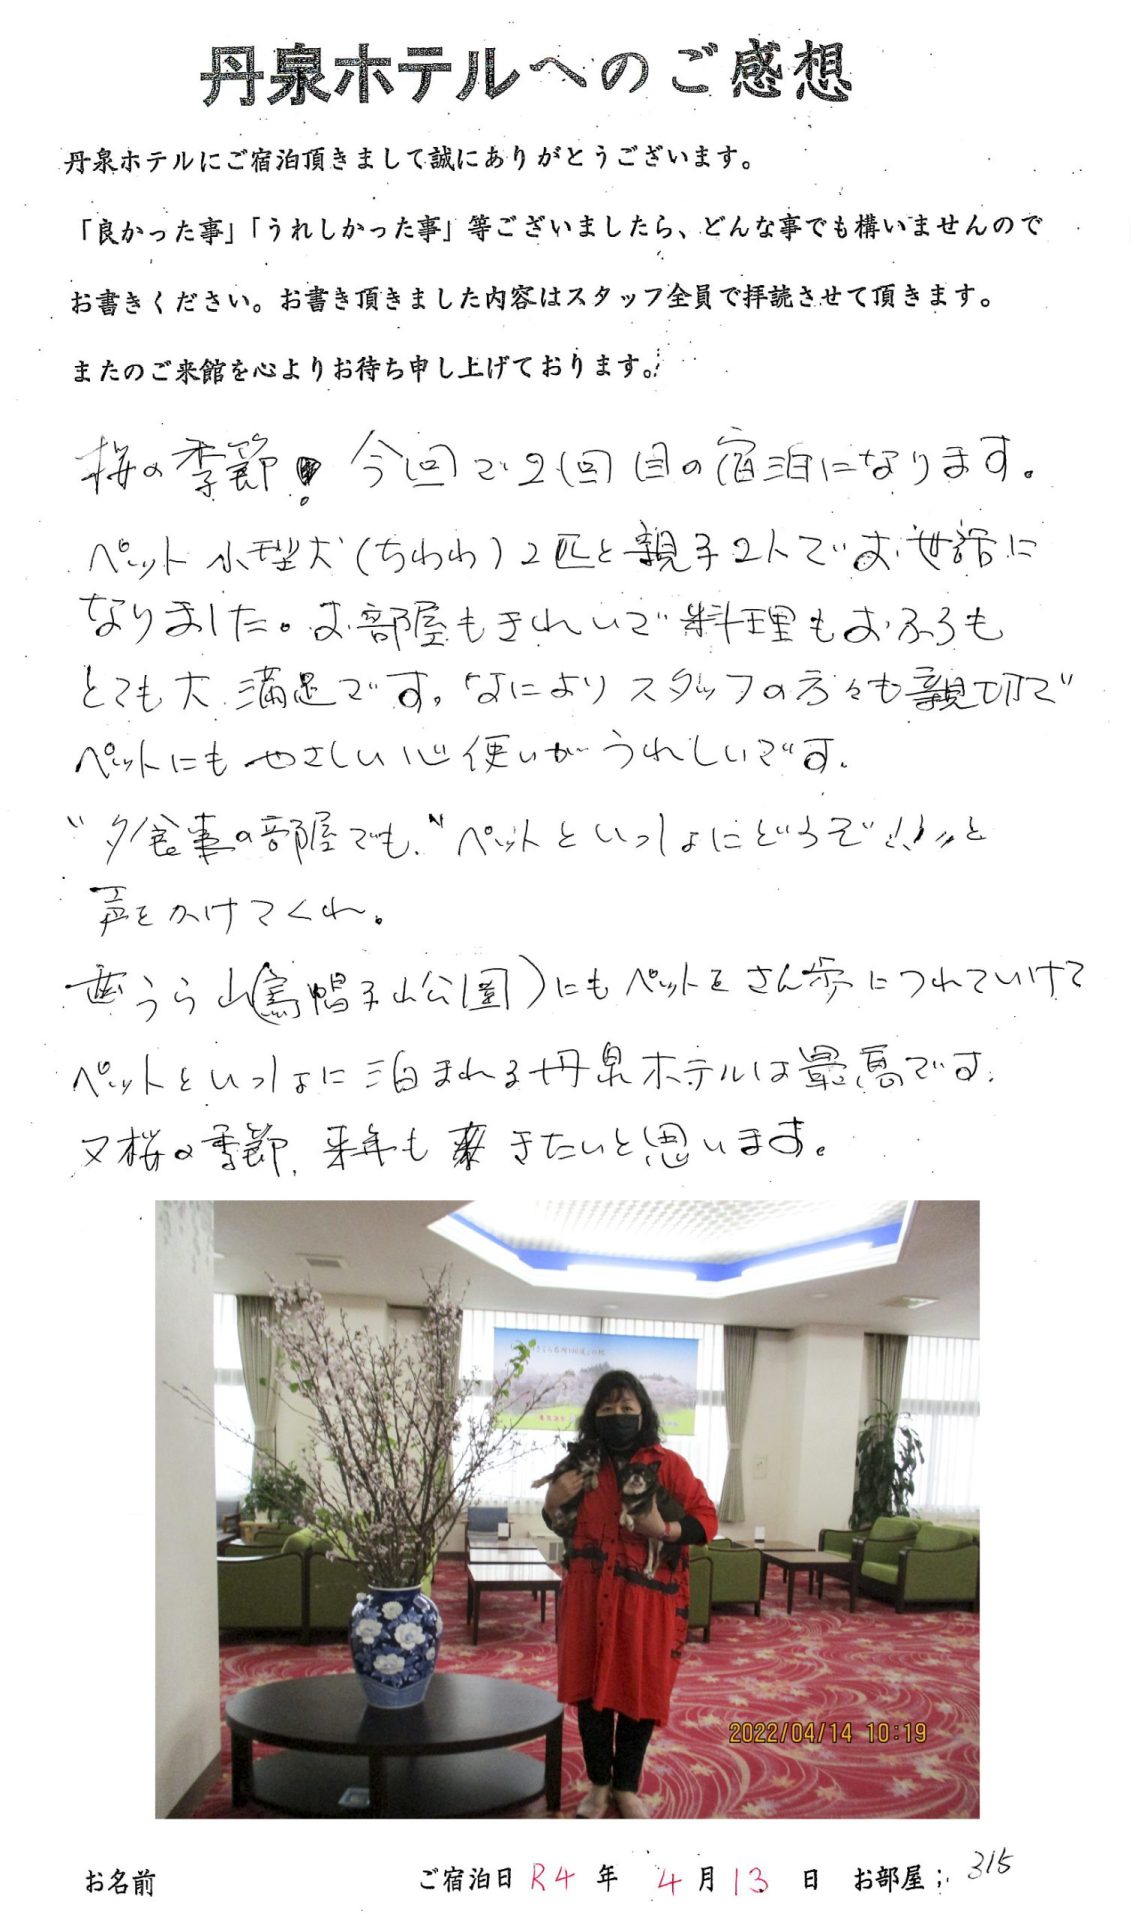 丹泉ホテルへのご感想
丹泉ホテルにご宿泊頂きまして誠にありがとうございます。
「良かった事」「うれしかった事」等ございましたら、どんな事でも構いませんので
お書きください。お書き頂きました内容はスタッフ全員で拝読させて頂きます。
またのご来館を心よりお待ち申し上げております。
桜の季節! 今回で2回目の宿泊になります。
ペット小型犬(ちわわ)2匹と親子2人でお世話に
なりました。お部屋もきれいで料理もおふろも
とても大満足です。なによりスタッフの方々も親切で
ペットにもやさしい心使いがうれしいです。
"夕食事の部屋でも、"ペットといっしょにどうぞ!!"と
声をかけてくれ。
うら山(烏帽子山公園)にもペットをさん歩につれていけて
ペットといっしょに泊まれる丹泉ホテルは最高です。
又桜の季節、来年も きたいと思います。
2022/04/14 10:19
お名前 ご宿泊日 R4 年 4 月 13 日 お部屋; 315